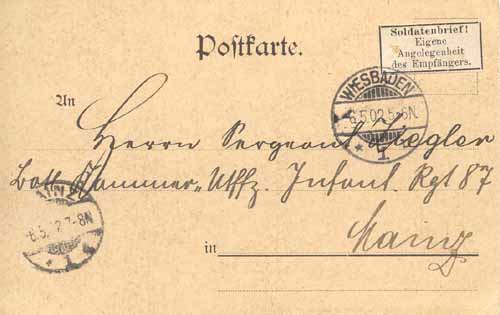 Postkarte.
Soldatenbrief!
Eigene
Angelegenheit
des Empfängers.
WIESBADEN
6.5.02.5-6N.
1
An
Herrn Sergeant Ziegler
Batl. Kammer-Uffz. Infant. Rgt 87
in Mainz
6.5. 2.7-8N
1